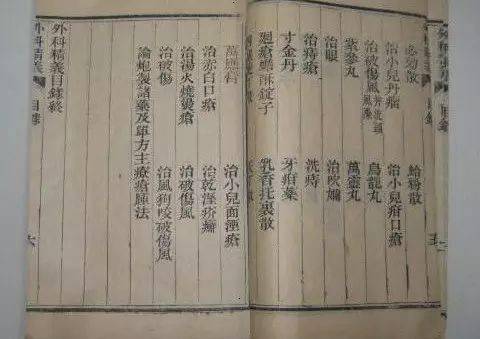 必効散　蛤粉散
治小兒丹瘤　治小兒疳口瘡
治破傷風　烏龍丸
紫參丸　萬靈丸
治眼　治吹嬭
治痔瘡　洗痔
寸金丹　牙疳藥
錠子　乳香托裏散
萬應膏　治小兒面湮瘡
治赤白口瘡　治乾溼疥癬
治湯火燒燙瘡　治破傷風
治破傷　治風狗咬破傷風
論炮製諸藥及單方主療瘡腫法
外科精義目錄終
外科精義　目錄　六